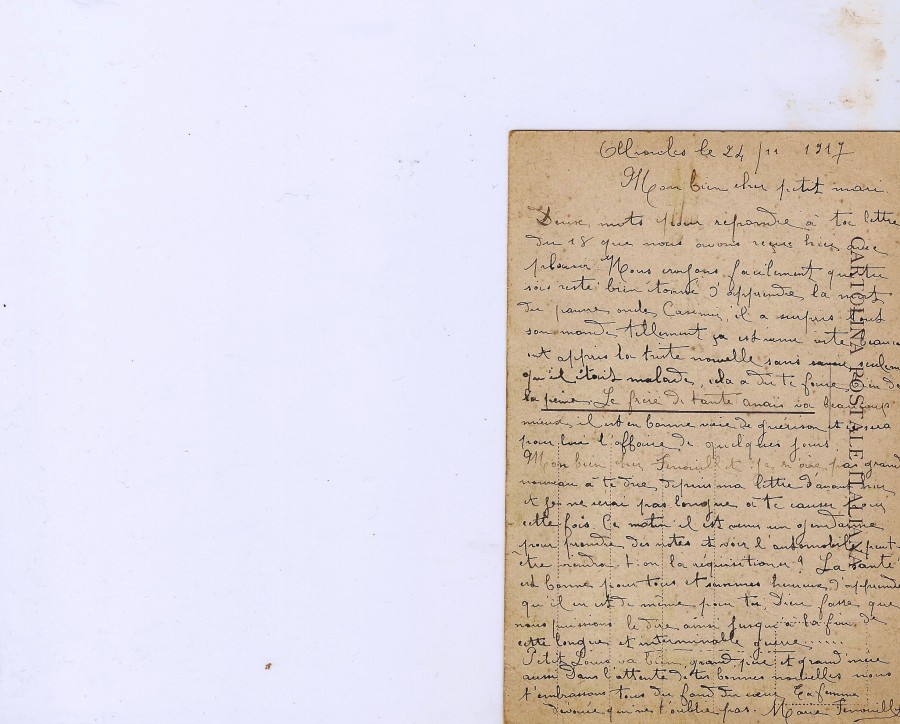 le 24 / 11 1917
Mon bien cher petit mari
Deux mots pour repondre à ta lettre
du 18 que nous avons reçue hier avec
plaisir Nous croyons facilement que tu
sois resté bien tonné d'apprendre la mort
du pauvre oncle Casimir, il a surpris tout
son monde tellement ça est venu vite, beauco
ont appris la triste nouvelle sans savoir seulem
qu'il était malade, cela a dû te faire bien de
la peine. Le frère de tante anaïs va beaucoup
mieux, il est en bonne voie de guérison et ce sera
pour lui l'affaire de quelques jours
Mon bien cher je n'ai pas grand
nouveau à te dire depuis ma lettre d'avant hier
et je ne serai pas longue à te causer
cette fois. Ce matin il est venu un gendarme
pour prendre des notes et voir l'automobile peut-
etre viendra t-on la réquisitioner? La santé
est bonne pour tous et sommes heureux d'apprendre
qu'il en est de même pour toi, Dieu fasse que
nous puissions le dire ainsi jusqu'à la fin de
cette longue et interminable guerre.....
Petit Louis va bien, grand père et grand mère
aussi Dans l'attente de tes bonnes nouvelles nous
t'embrassons tous du fond du cœur Ta femme
dévouée qui ne t'oublie pas. Marie
CARTOLINA POSTALE ITALIANA